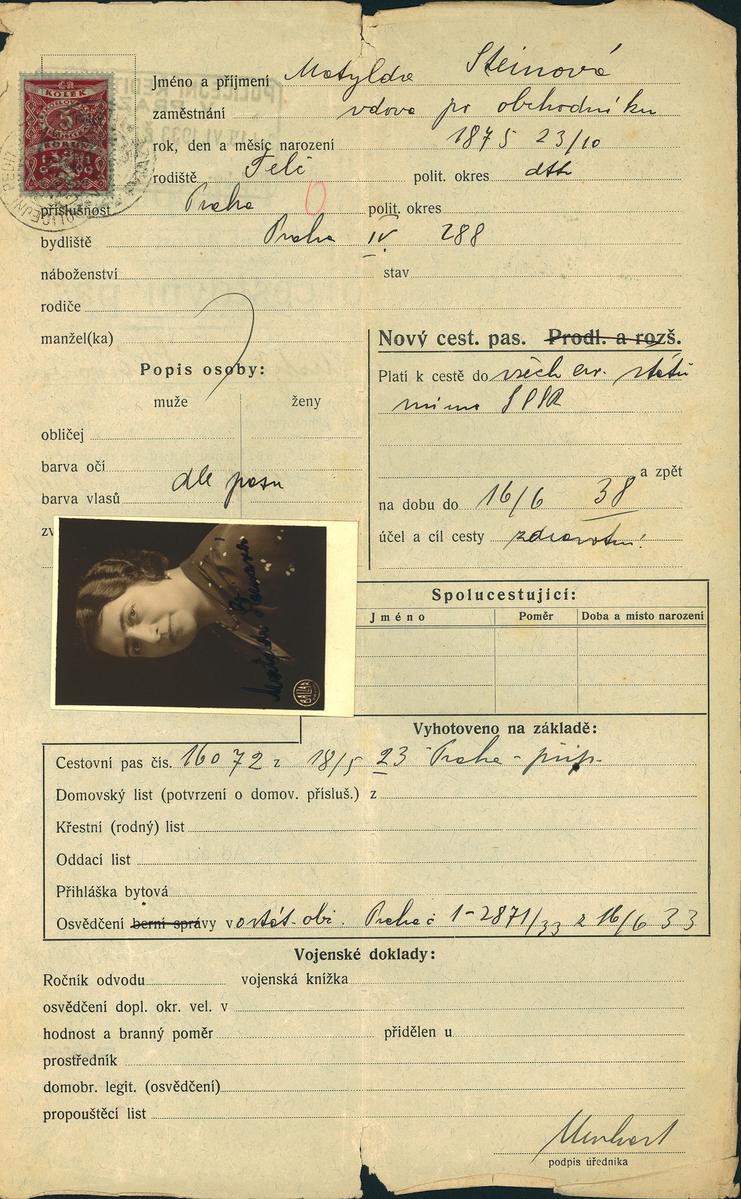 KOLEK
5
Jméno a příjmení Matylda Steinová
zaměstnání vdova po obchodníku
rok, den a měsíc narození 1875 23/10
rodiště Telč polit. okres dtto
příslušnost Praha polit. okres
bydliště Praha IV 288
náboženství stav
rodiče
manžel(ka)
Popis osoby:
muže ženy
obličej
barva očí
barva vlasů dle pasu
zv
Nový cest. pas. Prodl. a rozš.
Platí k cestě do všech ev. států
mimo SSSR
a zpět
na dobu do 16/6 38
účel a cíl cesty zdravotní
Spolucestující:
Jméno Poměr Doba a místo narození
Vyhotoveno na základě:
Cestovní pas čís. 16072 z 18/5 23 Praha - přísp.
Domovský list (potvrzení o domov. přísluš.) z
Křestní (rodný) list
Oddací list
Přihláška bytová
Osvědčení berní správy v Praha č 1-2871/33 z 16/6 33
Vojenské doklady:
Ročník odvodu vojenská knížka
osvědčení dopl. okr. vel. v
hodnost a branný poměr přidělen u
prostředník
domobr. legit. (osvědčení)
propouštěcí list
podpis úředníka